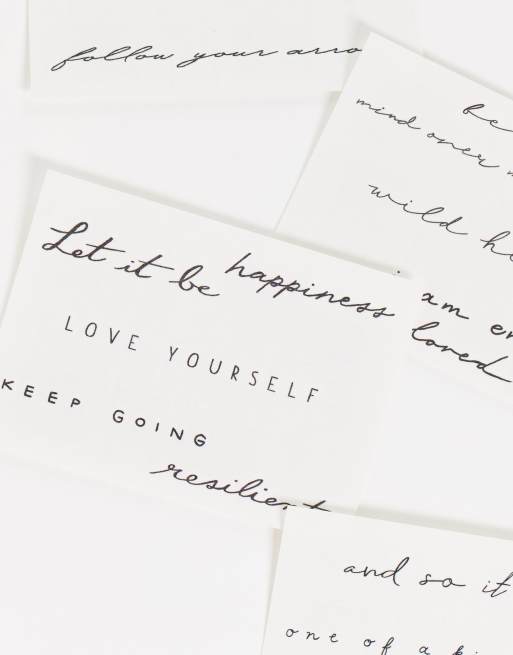 follow your arro
be
mind over m
wild h
am en
loved
Let it be happiness
LOVE YOURSELF
KEEP GOING
resilient
and so it
one of a ki